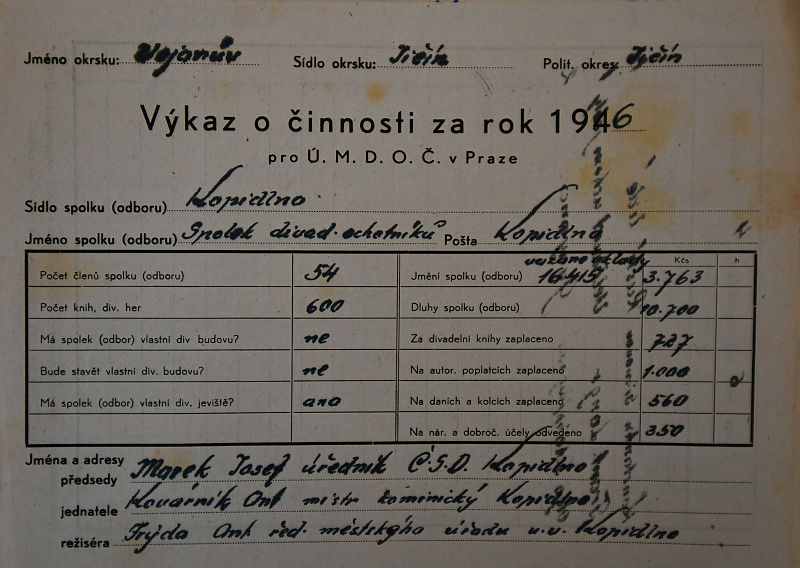 Jméno okrsku: Vojanův Sídlo okrsku: Jičín Polit. okres Jičín
Výkaz o činnosti za rok 1946
pro Ú. M. D. O. Č. v Praze
Sídlo spolku (odboru) Kopidlno
Jméno spolku (odboru) Spolek divad. ochotníků Pošta Kopidlno
vázané vklady Kčs h
Počet členů spolku (odboru) 54 Jmění spolku (odboru) 16415 3.763
Počet knih, div. her 600 Dluhy spolku (odboru) 10.700
Má spolek (odbor) vlastní div budovu? ne Za divadelní knihy zaplaceno 727
Bude stavět vlastní div. budovu? ne Na autor. poplatcích zaplaceno 1.000
Má spolek (odbor) vlastní div. jeviště? ano Na daních a kolcích zaplaceno 560
Na nár. a dobroč. účely odvedeno 350
Jména a adresy
předsedy Marek Josef úředník Č.S.D. Kopidlno
jednatele Kovárník Ant mistr kominický Kopidlno
režiséra Frýda Ant řed. městského úřadu v.v. Kopidlno